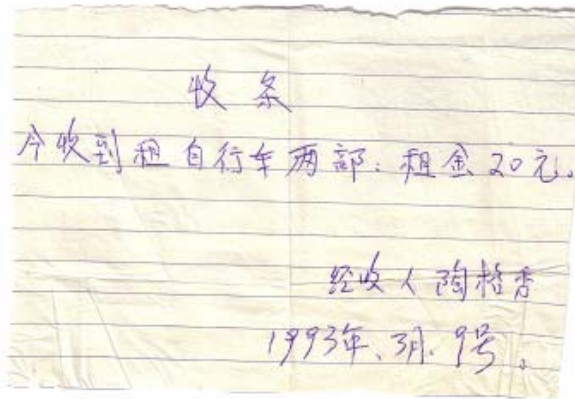 收条
今收到租自行车两部：租金20元。
经收人陶格秀
1993年、3月.9号。